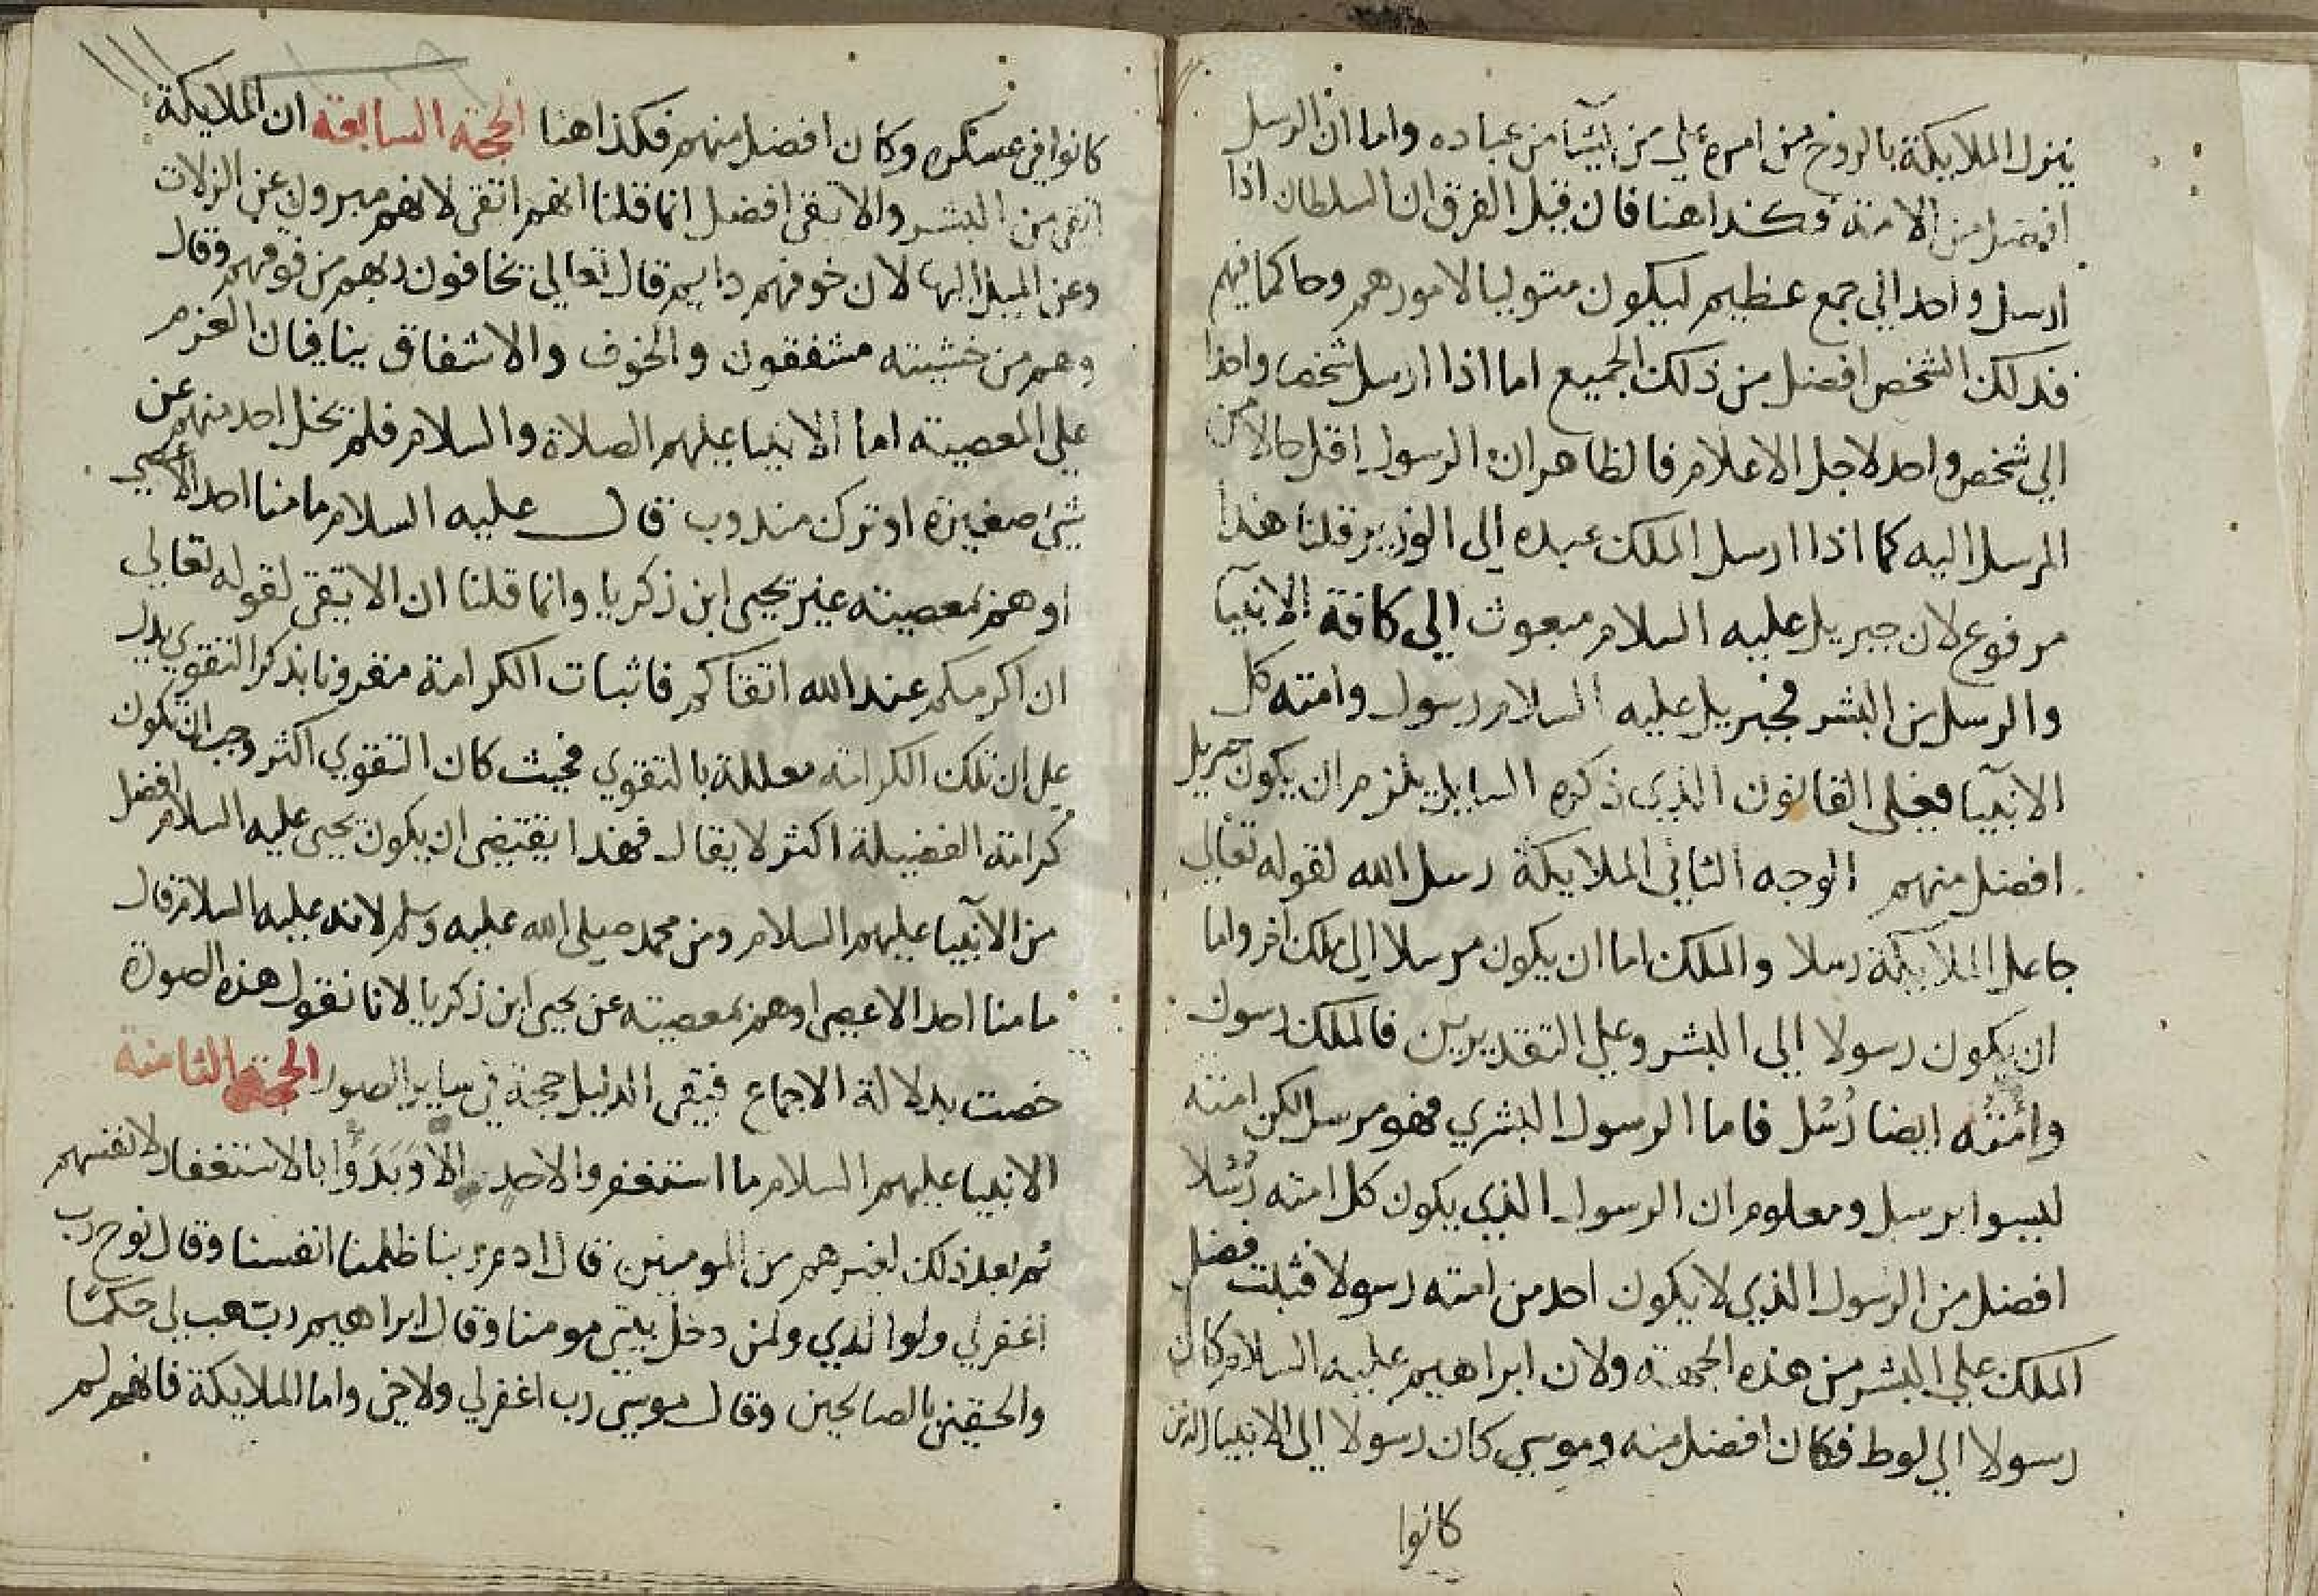 ينزل الملايكة بالروح من امره على من يشآ من عباده واما ان الرسل
افضل من الامة فكذا هنا فان قيل الفرق ان السلطان اذا
ارسل واحد الى جمع عظيم ليكون متوليا لامورهم وحاكما فيهم
فذلك الشخص افضل من ذلك الجميع اما اذا ارسل شخصا واحدا
الي شخص واحد لاجل الاعلام فالظاهر ان الرسول اقل حالا من
المرسل اليه كما اذا ارسل الملك عبده الى الوزير قلنا هذا
مرفوع لان جبريل عليه السلام مبعوث الي كافة الانبيآ
والرسل من البشر فجبريل عليه السلام رسول وامته كل
الانبيآ فعلى القانون الذي ذكره السايل يلزم ان يكون جبريل
افضل منهم الوجه الثاني الملايكة رسل الله لقوله تعالي
جاعل الملايكة رسلا والملك اما ان يكون مرسلا الي ملك اخر واما
ان يكون رسولا الي البشر وعلى التقديرين فالملك رسول
وامته ايضا رُسُل فاما الرسول البشري فهو مرسل لكن امته
ليسوا برسل ومعلوم ان الرسول الذي يكون كل امته رُسُلا
افضل من الرسول الذي لا يكون احد من امته رسولا فثبت فضل
الملك علي البشر من هذه الجهة ولان ابراهيم عليه السلام كان
رسولا الي لوط فكان افضل منه وموسي كان رسولا الي الانبيا الذين
كانوا
كانوا في عسكره وكان افضل منهم فكذا هنا الحجة السابعة ان الملايكة
اتقى من البشر والاتقى افضل انما قلنا انهم اتقى لانهم مبرون عن الزلات
وعن الميل اليها لان خوفهم دايم قال تعالي يخافون ربهم من فوقهم وقال
وهم من خشيته مشفقون والخوف والاشفاق ينافيان العزم
علي المعصية اما الانبيا عليهم الصلاة والسلام فلم يخل احد منهم عن
شيئ صغيرة او ترك مندوب قال عليه السلام ما منا احد الا عصي
او هم بمعصية غير يحيى ابن زكريا وانما قلنا ان الاتقى لقوله تعالي
ان اكرمكم عند الله اتقاكم فاثبات الكرامة مقرونا بذكر التقوي يدل
على ان تلك الكرامة معللة بالتقوي فحيث كان التقوي اكثر وجب ان تكون
كرامة الفضيلة اكثر لا يقال فهذا يقتضى ان يكون يحيى عليه السلام افضل
من الانبيآ عليهم السلام ومن محمد صلى الله عليه وسلم لانه عليه السلام قال
ما منا احد الا عصى او هم بمعصية عن يحيى ابن زكريا لانا نقول هذه الصورة
خصت بدلالة الاجماع فيبقى الدليل حجة في ساير الصور الحجة الثامنة
الانبيا عليهم السلام ما استغفروا لاحد الا وَبَدَؤُا بالاستغفار لانفسهم
ثم بعد ذلك لغيرهم من المومنين قال ادم ربنا ظلمنا انفسنا وقال نوح رب
اغفرلي ولوالدي ولمن دخل بيتى مومنا وقال ابراهيم رب هب لي حكما
والحقني بالصالحين وقال موسي رب اغفرلي ولاخي واما الملايكة فانهم لم